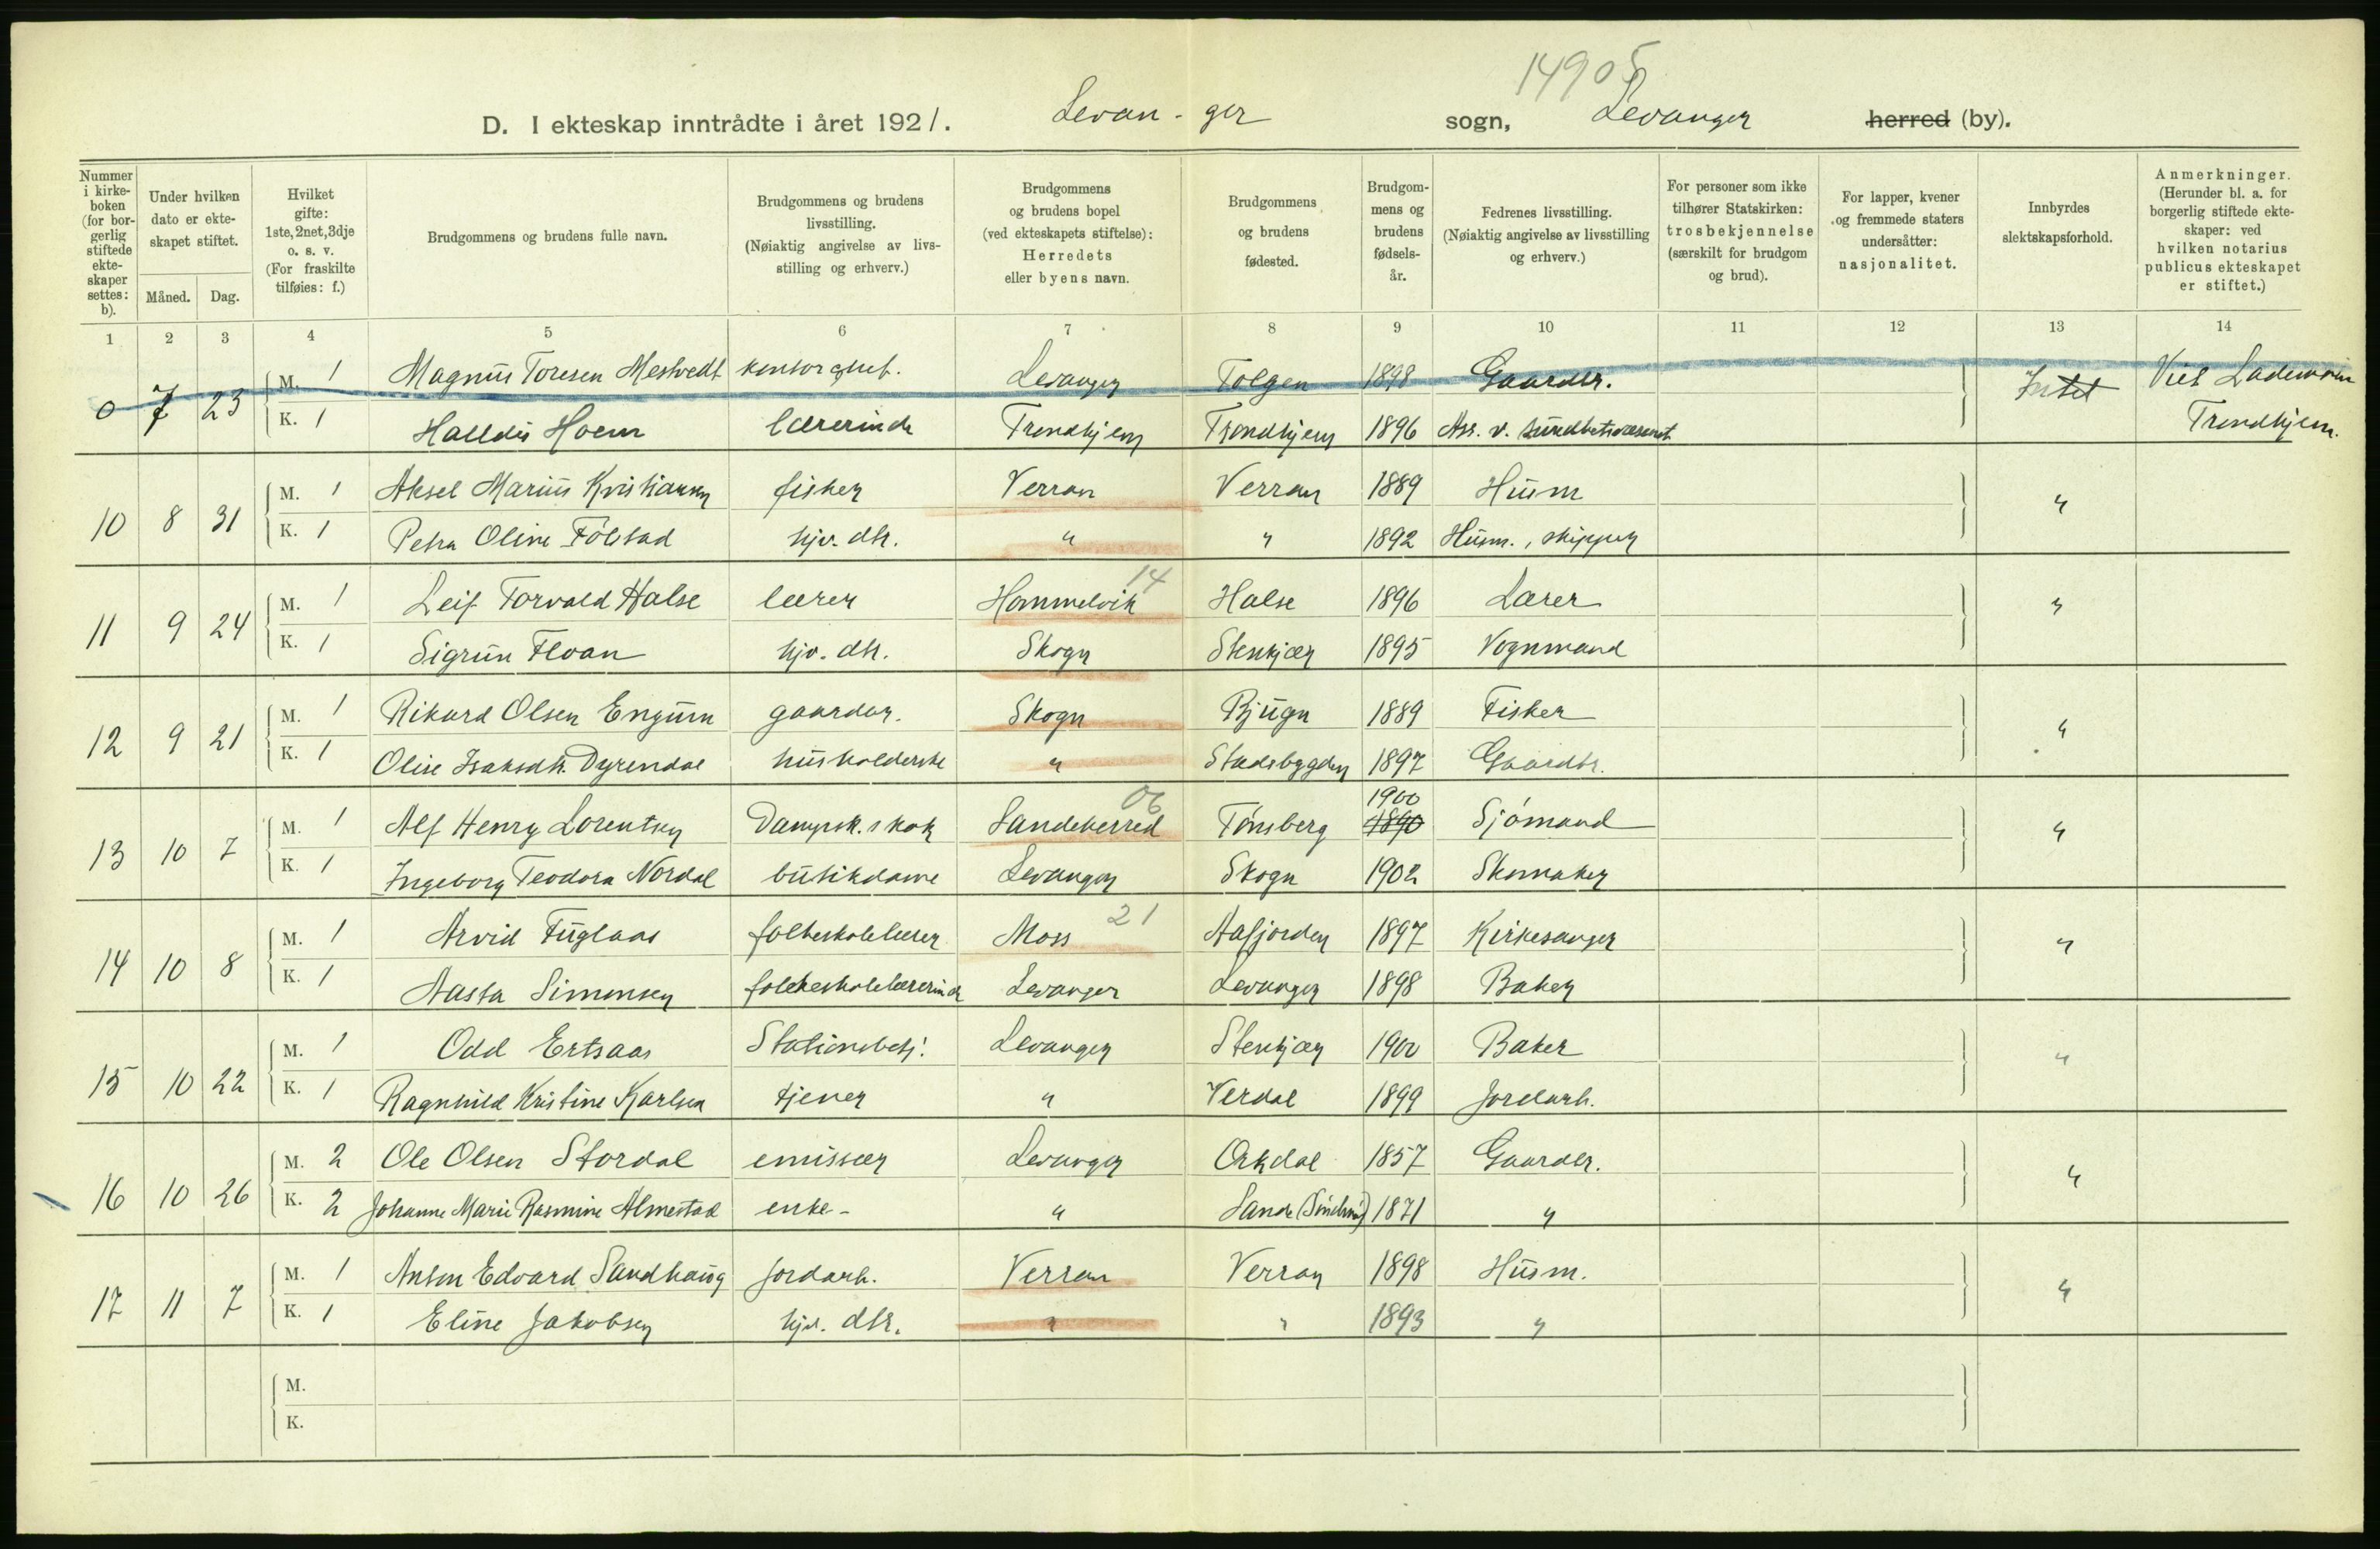 14905
D. I ekteskap inntrådte i året 1921. Levan-ger sogn, Levanger herred (by).
Nummer i kirkeboken (for borgerlig stiftede ekteskaper settes: b).
Under hvilken dato er ekteskapet stiftet.
Måned. Dag.
Hvilket gifte: 1ste, 2net, 3dje o. s. v. (For fraskilte tilføies: f.)
Brudgommens og brudens fulle navn.
Brudgommens og brudens livsstilling. (Nøiaktig angivelse av livsstilling og erhverv.)
Brudgommens og brudens bopel (ved ekteskapets stiftelse): Herredets eller byens navn.
Brudgommens og brudens fødested.
Brudgommens og brudens fødselsår.
Fedrenes livsstilling. (Nøiaktig angivelse av livsstilling og erhverv.)
For personer som ikke tilhører Statskirken: trosbekjennelse (særskilt for brudgom og brud).
For lapper, kvener og fremmede staters undersåtter: nasjonalitet.
Innbyrdes slektskapsforhold.
Anmerkninger. (Herunder bl. a. for borgerlig stiftede ekteskaper: ved hvilken notarius publicus ekteskapet er stiftet.)
1 2 3 4 5 6 7 8 9 10 11 12 13 14
0 7 23 M. 1 Magnus Toresen Mestvedt Levanger Tolgen 1898 Gaardbr. Intet Viet Lademoen
K. 1 Halldis Hoem lærerinde Trondhjem Trondhjem 1896 Ass. v. sundhetsvæsenet Trondhjem.
10 8 31 M. 1 Aksel Marius Kristiansen fisker Verran Verran 1889 Husm "
K. 1 Petra Oline Følstad hjv. dtr. " " 1892 Husm., skipper
14
11 9 24 M. 1 Leif Torvald Halse lærer Hommelvik Halse 1896 Lærer "
K. 1 Sigrun Floan hjv. dtr. Skogn Stenkjær 1895 Vognmand
12 9 21 M. 1 Rikard Olsen Engum gaardbr. Skogn Bjugn 1889 Fisker "
K. 1 Olise Isaksdtr. Dyrendal husholderske " Stadsbygden 1897 Gaardbr.
06 1900
13 10 7 M. 1 Alf Henry Lorentsen Dampsk.skok Sandeherred Tønsberg 1890 Sjømand "
K. 1 Ingeborg Teodora Nordal butikdame Levanger Skogn 1902 Skomaker
21
14 10 8 M. 1 Arvid Fuglaas folkeskolelærer Moss Aafjorden 1897 Kirkesanger "
K. 1 Aasta Simonsen folkeskolelærerinde Levanger Levanger 1898 Baker
15 10 22 M. 1 Odd Ertsaas Stationsbetj. Levanger Stenkjær 1900 Baker "
K. 1 Ragnhild Kristine Karlsen tjener " Verdal 1899 Jordarb.
16 10 26 M. 2 Ole Olsen Stordal emissær Levanger Orkdal 1857 Gaardbr. "
K. 2 Johanne Marie Rasmine Almestad enke- " Sande (Søndmør) 1871 "
17 11 7 M. 1 Anton Edvard Sandhaug Jordarb. Verran Verran 1898 Husm. "
K. 1 Eline Jakobsen hjv. dtr. " " 1893 "
M.
K.